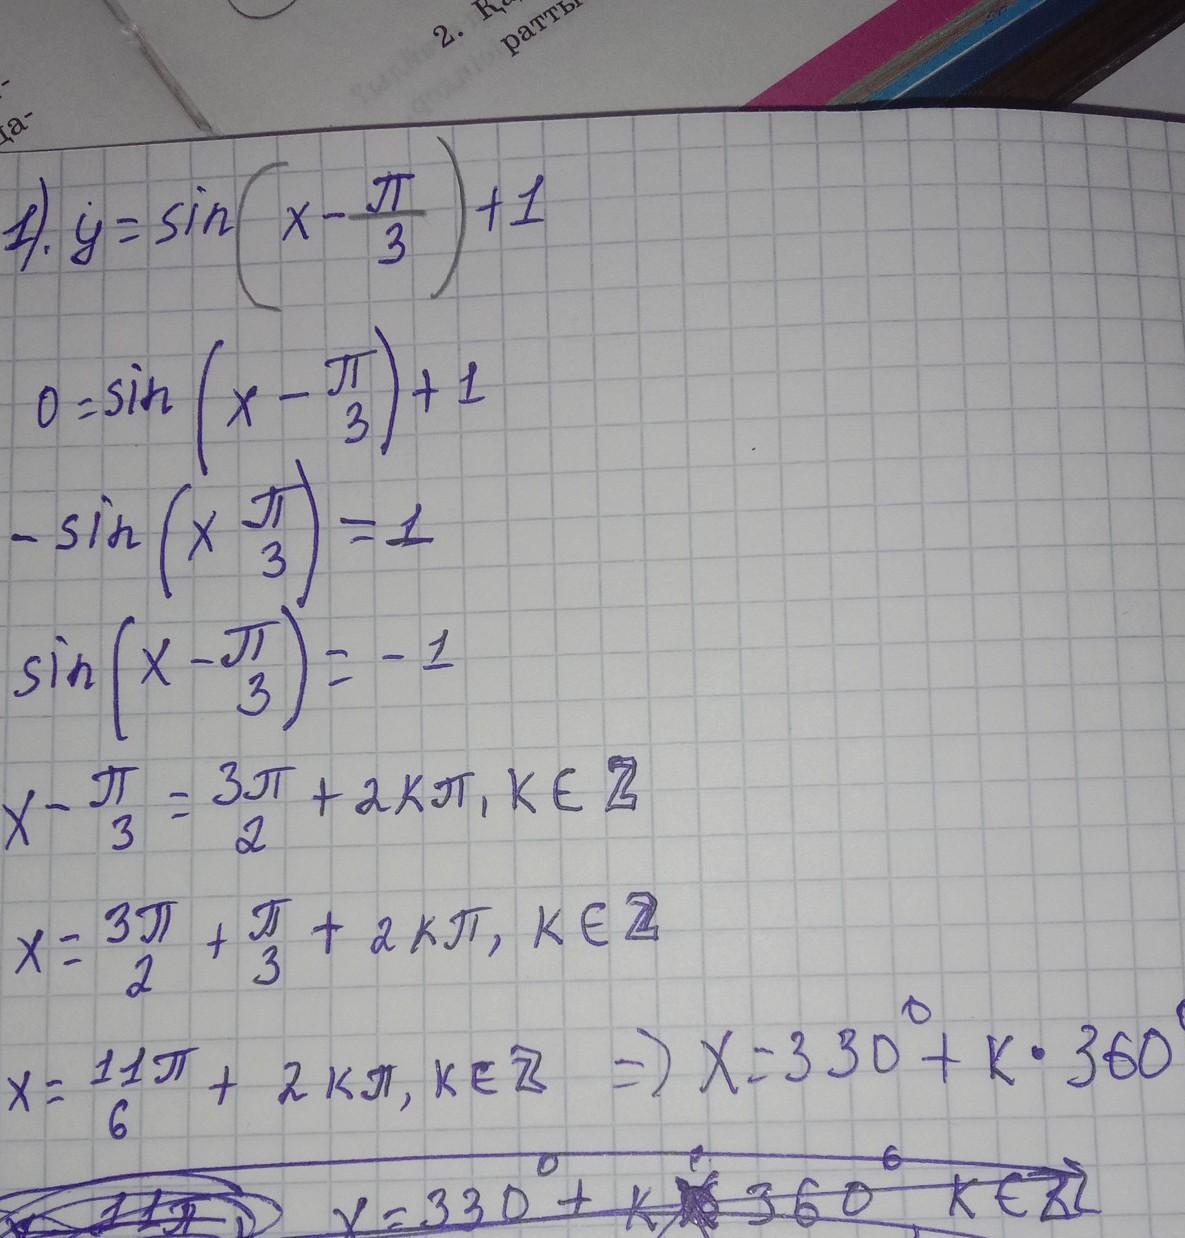 2. Қ
ратты
ца-
1). y = sin(x - π/3) + 1
0 = sin(x - π/3) + 1
- sin(x π/3) = 1
sin(x - π/3) = - 1
x - π/3 = 3π/2 + 2kπ, k ∈ Z
x = 3π/2 + π/3 + 2kπ, k ∈ Z
x = 11π/6 + 2kπ, k ∈ Z => x = 330° + k • 360°
11π x = 330° + k 360° k ∈ Z